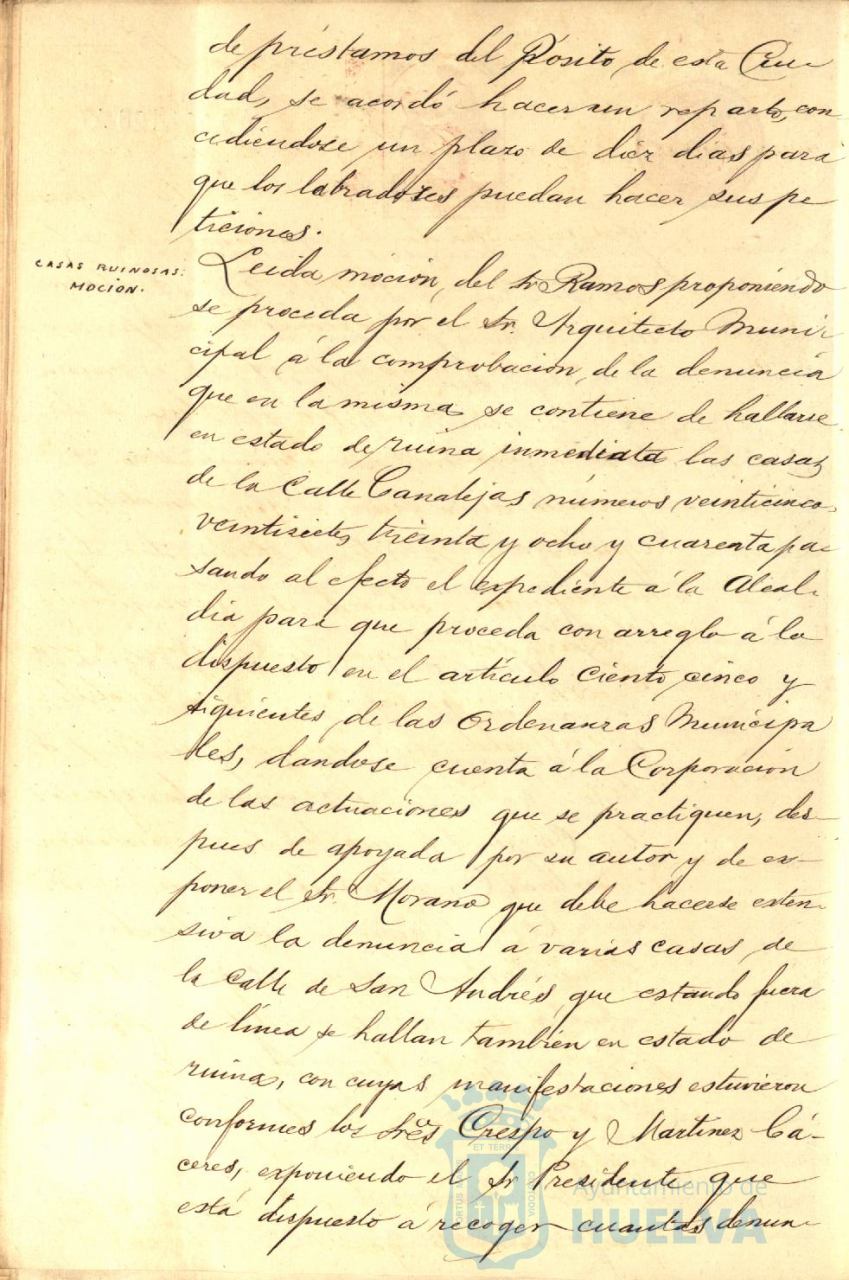 de préstamos del Pósito de esta Ciu-
dad, se acordó hacer un reparto, con
cediéndose un plazo de diez dias para
que los labradores puedan hacer sus pe
ticiones.
CASAS RUINOSAS:
MOCION.
Leida moción, del Sr. Ramos proponiendo
se proceda por el Sr. Arquitecto Muni-
cipal á la comprobacion, de la denuncia
que en la misma se contiene de hallarse
en estado de ruina inmediata las casas
de la Calle Canalejas números veinticinco,
veintisiete, treinta y ocho y cuarenta pa-
sando al efecto el expediente á la Alcal-
dia para que proceda con arreglo á lo
dispuesto en el artículo ciento cinco y
siguientes de las Ordenanzas Municipa
les, dandose cuenta á la Corporación
de las actuaciones que se practiquen, des-
pues de apoyada por su autor y de ex-
poner el Sr. Morano que debe hacerse exten-
siva la denuncia á varias casas, de
la Calle de San Andrés, que estando fuera
de línea se hallan también en estado de
ruina, con cuyas manifestaciones estuvieron
conformes los Sres Crespo y Martinez Cá-
ceres, exponiendo el Sr Presidente que
está dispuesto á recoger cuantas denun-
Ayuntamiento de
HUELVA